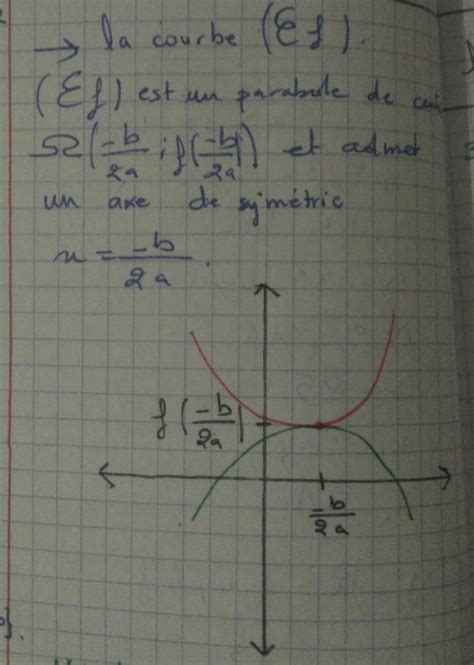 → la courbe (Ef).
(Ef) est un parabole de
Ω(-b/2a ; f(-b/2a)) et admet
un axe de symétric
x = -b/2a.
f(-b/2a)
-b/2a